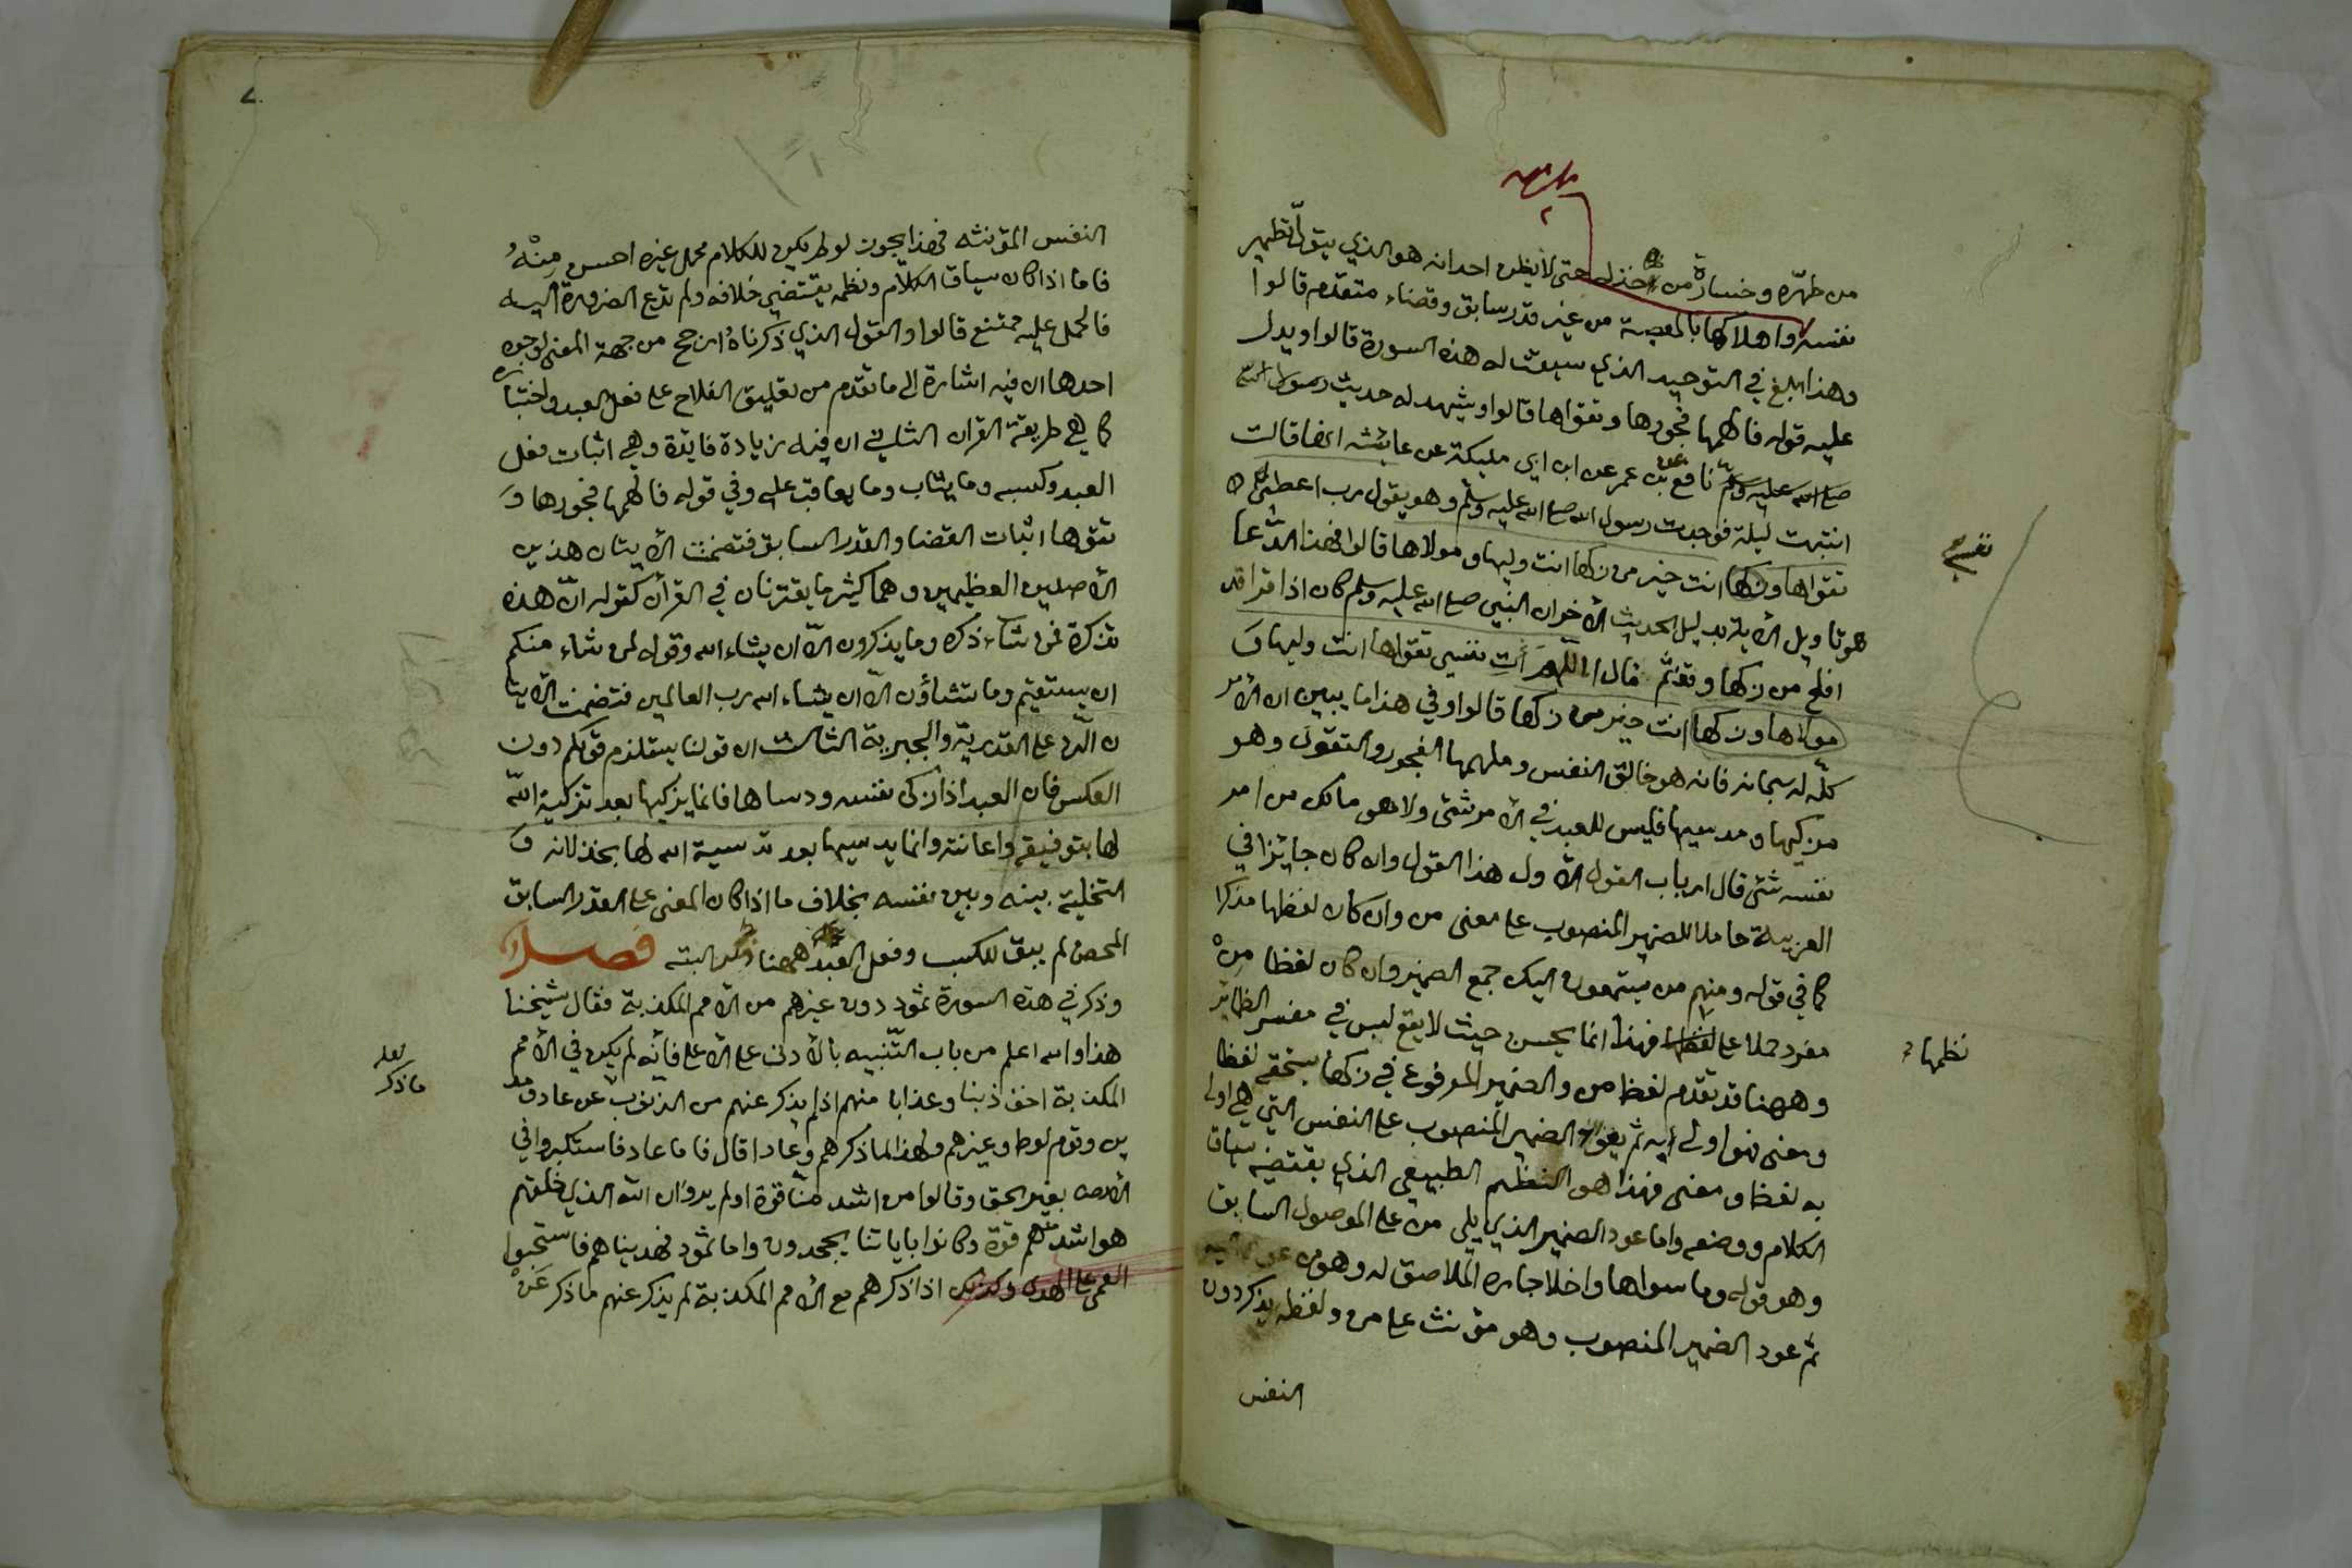 من طهّره وخسارة من خذله حتى لا يظن احد انه هو الذي يتولّ تطهير
نفسه واهلاكها بالمعصية من غير قدر سابق وقضاء متقدم قالوا
وهذا ابلغ في التوحيد الذي سيقت له هذه السورة قالوا ويدل
عليه قوله فالهمها فجورها وتقواها قالوا ويشهد له حديث رسول الله
صلى الله عليه وسلم نافع عن بن عمر عن ابن ابي مليكة عن عايشه انها قالت
انتبهت ليلة فوجدت رسول الله صلى الله عليه وسلم وهو يقول رب اعط
نفسي
تقواها وزكها انت خير من زكها انت وليها ومولاها قالوا فهذا الدّعا
هو تاويل الاية بدليل الحديث الاخر ان النبي صلى الله عليه وسلم كان اذا قرا قد
افلح من زكها وقف ثم قال اللهم آت نفسي تقواها انت وليها و
مولاها وزكها انت خير من زكها قالوا وفي هذا ما يبين ان الامر
كلّه له سبحانه فانه هو خالق النفس وملهمها الفجور والتقوى وهو
مزكيها ومدسيها فليس للعبد في الامر شئ ولا هو مالك من امر
نفسه شئ قال ارباب القول الاول هذا القول وان كان جايزا في
العربية حاملا للضمير المنصوب على معنى من وان كان لفظها مذكرا
كما في قوله ومنهم من يستمعون اليك جمع الضمير وان كان لفظا مِنْ
مفرد حملا على نظمها فهذا انما يحسن حيث لا يقع لبس في مفسر الضماير
نظمها
وههنا قد تقدم لفظ من والضمير المرفوع في زكها يستحقه لفظا
ومعنى فهو اولى به ثم يعود الضمير المنصوب على النفس التي هي اولى
به لفظا ومعنى فهذا هو النظم الطبيعي الذي يقتضيه سياق
الكلام ووضعه واما عود الضمير الذي يلي من على الموصول السابق
وهو قوله وما سواها واخلا جاره الملاصق له وهو من
ثم عود الضمير المنصوب وهو مؤنث على من ولفظه يذكر دون
النفس
النفس المؤنثه فهذا يجوز لو لم يكن للكلام محمل غيره احسن مِنْهُ
فاما اذا كان سياق الكلام ونظمه يقتضي خلافه ولم تدع الضرورة اليه
فالحمل عليه ممتنع قالوا والقول الذي ذكرناه ارجح من جهة المعنى لوجوه
احدها ان فيه اشارة الى ما تقدم من تعليق الفلاح على فعل العبد واختياره
كما هي طريقة القران الثاني ان فيه زيادة فايدة وهي اثبات فعل
العبد وكسبه وما يثاب وما يعاقب عليه وفي قوله فالهمها فجورها و
تقوها اثبات القضا والقدر السابق فتضمنت الايتان هذين
الاصلين العظيمين وهما كثير ما يقترنان في القرآن كقوله انّ هذه
تذكرة فمن شاء ذكره وما يذكرون الا ان يشاء الله وقوله لمن شاء منكم
ان يستقيم وما تشاؤن الا ان يشاء الله رب العالمين فتضمنت الايتا
ن الرد على القدرية والجبرية الثالث ان قولنا يستلزم قولكم دون
العكس فان العبد اذا زكى نفسه ودساها فانما يزكيها بعد تزكية الله
لها بتوفيقه واعانته وانما يدسيها بعد تدسية الله لها بخذلانه و
التخلية بينه وبين نفسه بخلاف ما اذا كان المعنى على القدر السابق
المحض لم يبق للكسب وفعل العبد ههنا ذكر البته فصل
وذكر في هذه السورة ثمود دون غيرهم من الامم المكذبة فقال شيخنا
هذا والله اعلم من باب التّنبيه بالادنى على الاعلى فانّه لم يكن في الامم
المكذبة اخف ذنبا وعذابا منهم اذ لم يذكر عنهم من الذنوب عن عاد ومد
لعله
ما ذكر
ين وقوم لوط وغيرهم ولهذا لما ذكرهم وعادا قال فاما عاد فاستكبروا في
الارض بغير الحق وقالوا من اشد منّا قوة اولم يروا ان الله الذي خلقهم
هو اشد منهم قوة وكانوا باياتنا يجحدون واما ثمود فهديناهم فاستحبوا
العمى على الهدى وكذلك اذا ذكرهم مع الامم المكذبة لم يذكر عنهم ما ذكر عَنْ